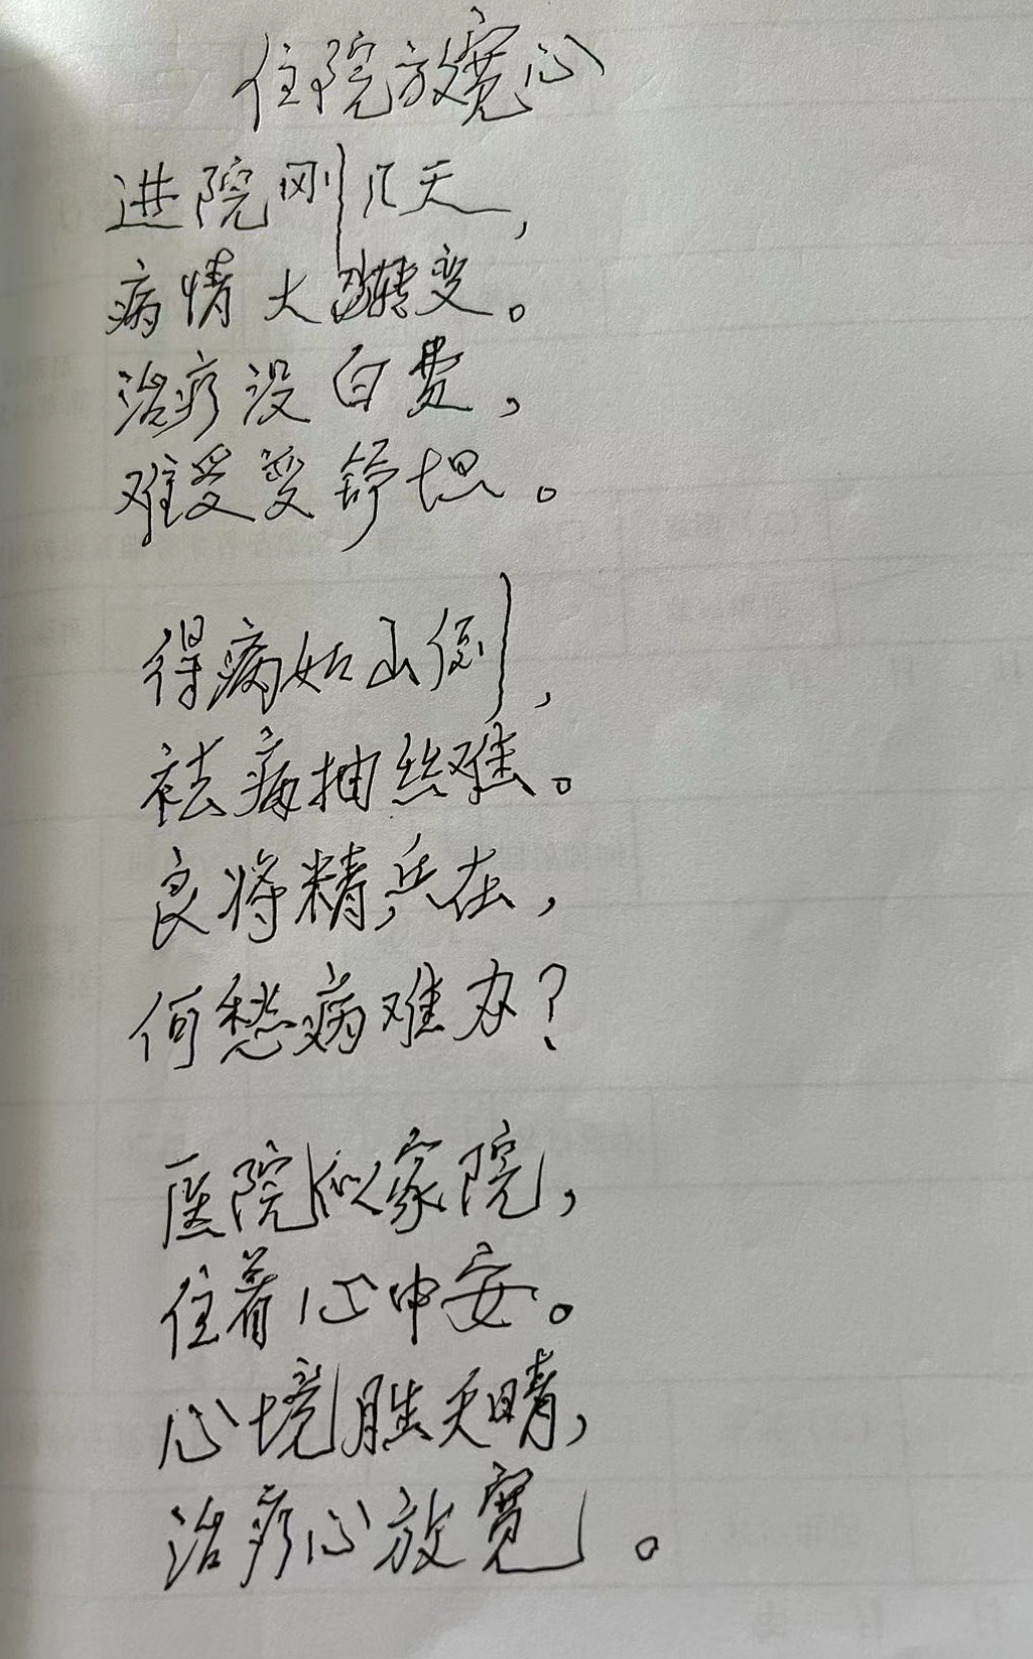 住院放宽心
进院刚几天，
病情大转变。
治疗没白费，
难受变舒坦。
得病如山倒，
祛病抽丝难。
良将精兵在，
何愁病难办？
医院似家院，
住着心中安。
心境胜天晴，
治疗心放宽。